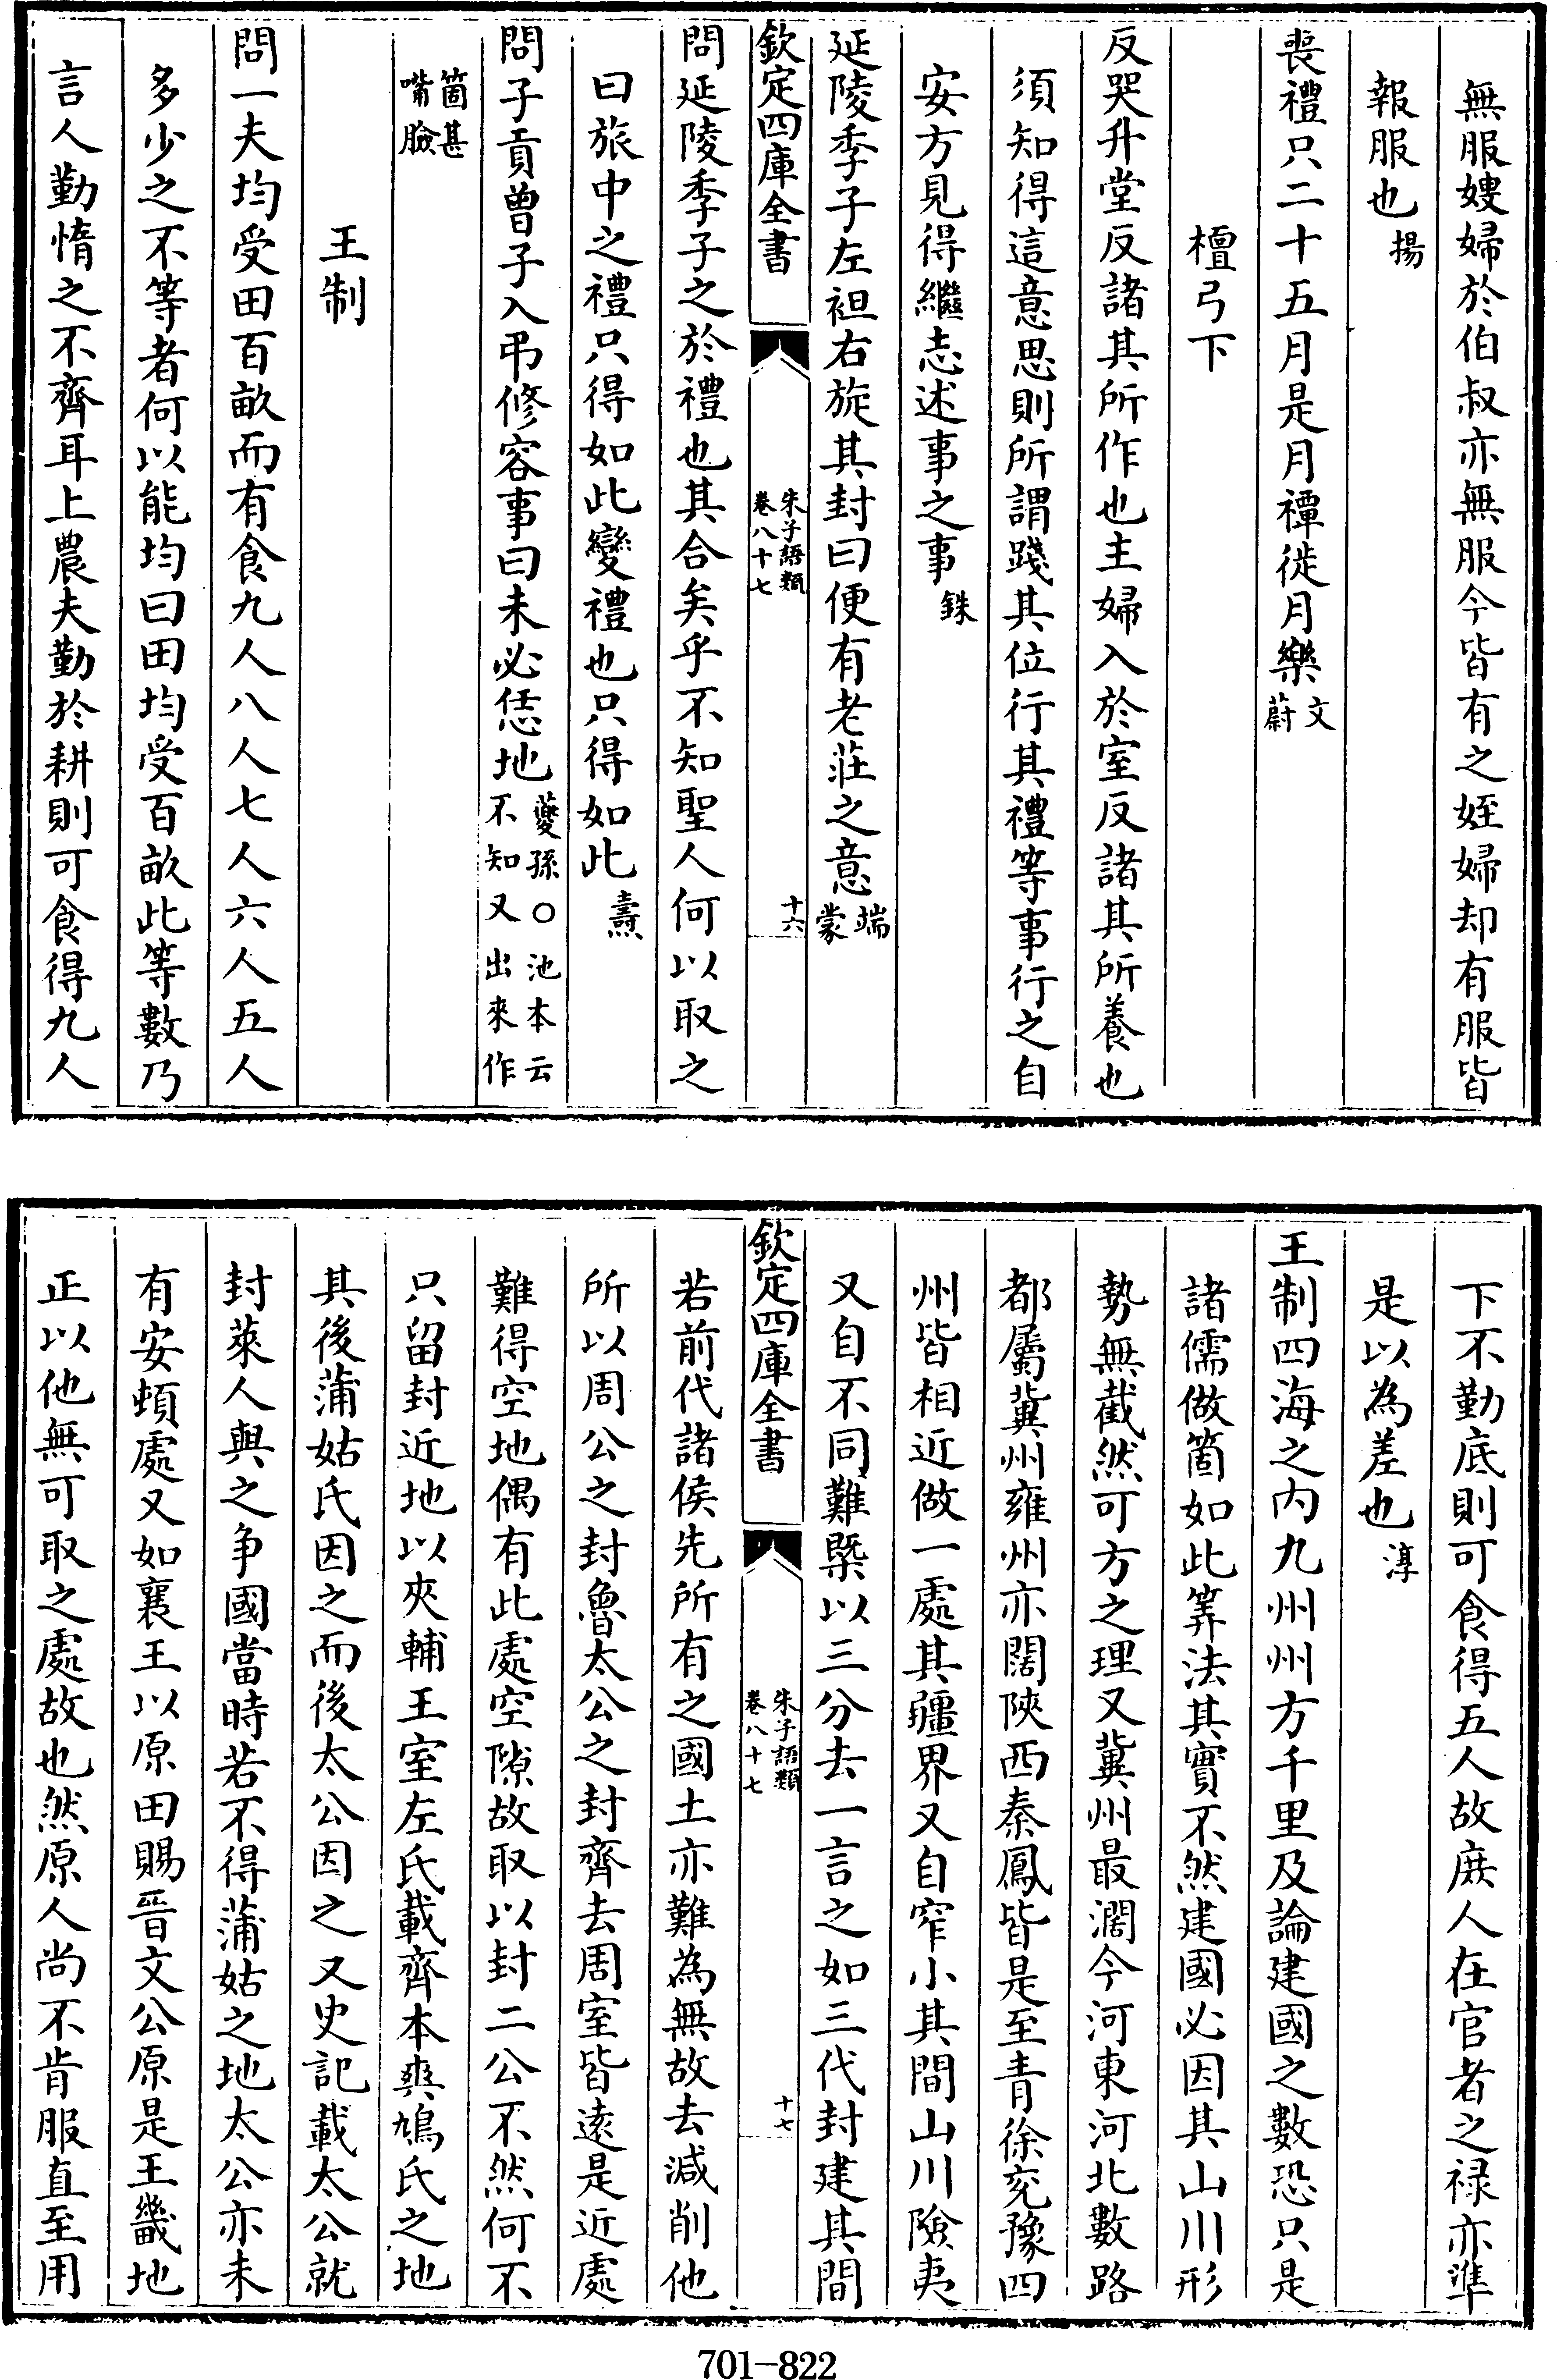 無服嫂婦於伯叔亦無服今皆有之姪婦却有服皆
報服也揚
喪禮只二十五月是月禫徙月樂文蔚
檀弓下
反哭升堂反諸其所作也主婦入於室反諸其所養也
須知得這意思則所謂踐其位行其禮等事行之自
安方見得繼志述事之事銖
延陵季子左袒右旋其封曰便有老莊之意端蒙
欽定四庫全書 朱子語類 卷八十七 十六
問延陵季子之於禮也其合矣乎不知聖人何以取之
曰旅中之禮只得如此變禮也只得如此燾
問子貢曾子入弔修容事曰未必恁地夔孫○池本云不知又出來作
箇甚嘴臉
王制
問一夫均受田百畝而有食九人八人七人六人五人
多少之不等者何以能均曰田均受百畝此等數乃
言人勤惰之不齊耳上農夫勤於耕則可食得九人
下不勤底則可食得五人故庶人在官者之祿亦準
是以為差也淳
王制四海之內九州州方千里及論建國之數恐只是
諸儒做箇如此筭法其實不然建國必因其山川形
勢無截然可方之理又冀州最濶今河東河北數路
都屬冀州雍州亦闊陝西秦鳳皆是至青徐兗豫四
州皆相近做一處其疆界又自窄小其間山川險夷
又自不同難槩以三分去一言之如三代封建其間
欽定四庫全書 朱子語類 卷八十七 十七
若前代諸侯先所有之國土亦難為無故去減削他
所以周公之封魯太公之封齊去周室皆遠是近處
難得空地偶有此處空隙故取以封二公不然何不
只留封近地以夾輔王室左氏載齊本爽鳩氏之地
其後蒲姑氏因之而後太公因之又史記載太公就
封萊人與之争國當時若不得蒲姑之地太公亦未
有安頓處又如襄王以原田賜晉文公原是王畿地
正以他無可取之處故也然原人尚不肯服直至用
701-822